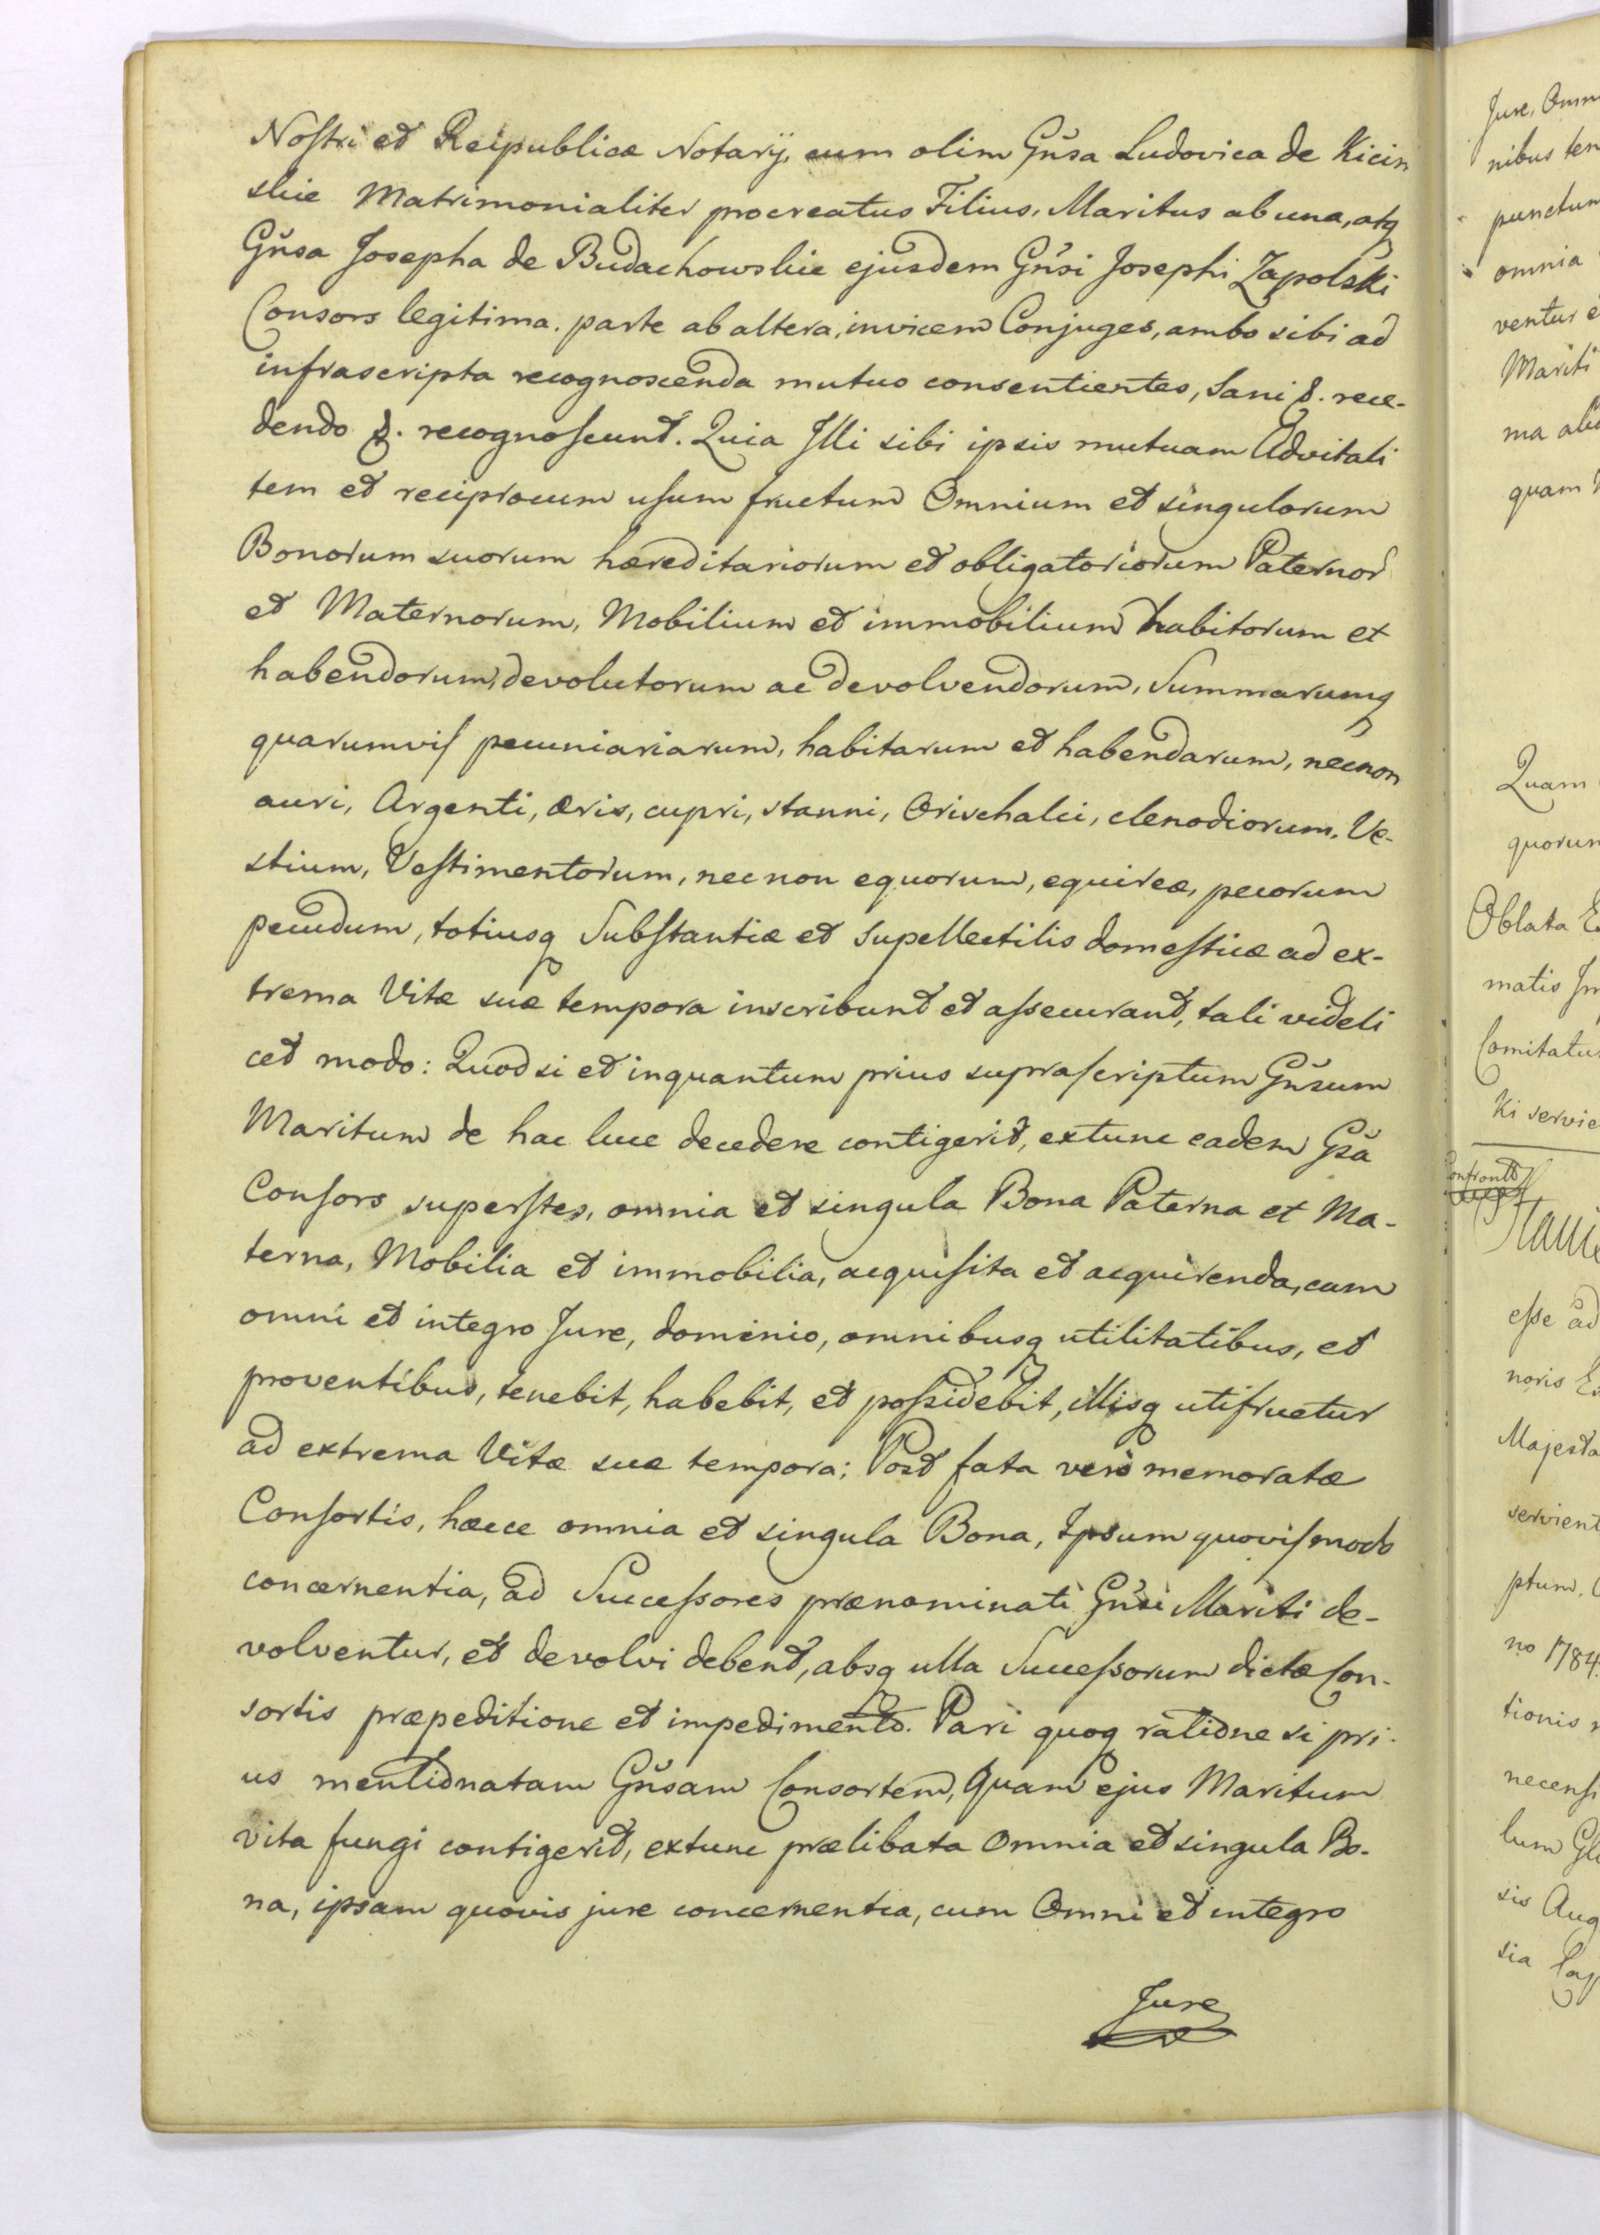 Nostri et Reipublicæ Notarij, cum olim Gñsa Ludovica de Kicin
skie Matrimonialiter procreatus Filius, Maritus ab una, atq
Gñsa Josepha de Budachowskie ejusdem Gñsi Josephi Zapolski
Consors legitima, parte ab altera, invicem Conjuges, ambo sibi ad
infrascripta recognoscenda mutuo consentientes, Sani &. rece-
dendo &. recognoscunt. Quia Illi sibi ipsis mutuam Advitali
tem et reciprocum usum fructum Omnium et singulorum
Bonorum suorum hæreditariorum et obligatoriorum Paternor
et Maternorum, Mobilium et immobilium habitorum et
habendorum, devolutorum ac devolvendorum, Summarumq
quarumvis pecuniariarum, habitarum et habendarum, necnon
auri, Argenti, æris, cupri, stanni, Orischalci, clenodiorum, Ve-
stium, Vestimentorum, nec non equorum, equireæ, pecorum
pecudum, totiusq Substantiæ et Supellectilis domesticæ ad ex-
trema Vitæ suæ tempora inscribunt et assecurant, tali videli
cet modo: Quod si et inquantum prius suprascriptum Gñsum
Maritum de hac luce decedere contigerit, extunc eadem Gsã
Consors superstes, omnia et singula Bona Paterna et Ma-
terna, Mobilia et immobilia, acquisita et acquirenda, cum
omni et integro Jure, dominio, omnibusq utilitatibus, et
proventibus, tenebit, habebit, et possidebit, illisq utifruetur
ad extrema Vitæ suæ tempora; Post fata verò memoratæ
Consortis, hæcce omnia et singula Bona, Ipsum quovismodo
concernentia, ad Successores prænominati Gñsi Mariti de-
volventur, et devolvi debent, absq ulla Successorum dictæ Con-
sortis præpeditione et impedimento. Pari quoq ratione si pri-
us mentionatam Gñsam Consortem, Quam ejus Maritum
vita fungi contigerit, extunc prælibata Omnia et singula Bo-
na, ipsam quovis jure concernentia, cum Omni et integro
Jure
Jure, Omn
nibus ten
punctum
omnia
ventur e
Mariti
quam
Quam
quorum
Oblata
matis
Comitatu
ki servie
esse ad
noris
Majesta
servient
ptum.
no 1784.
tionis
necensi
lum
sis Aug
sia